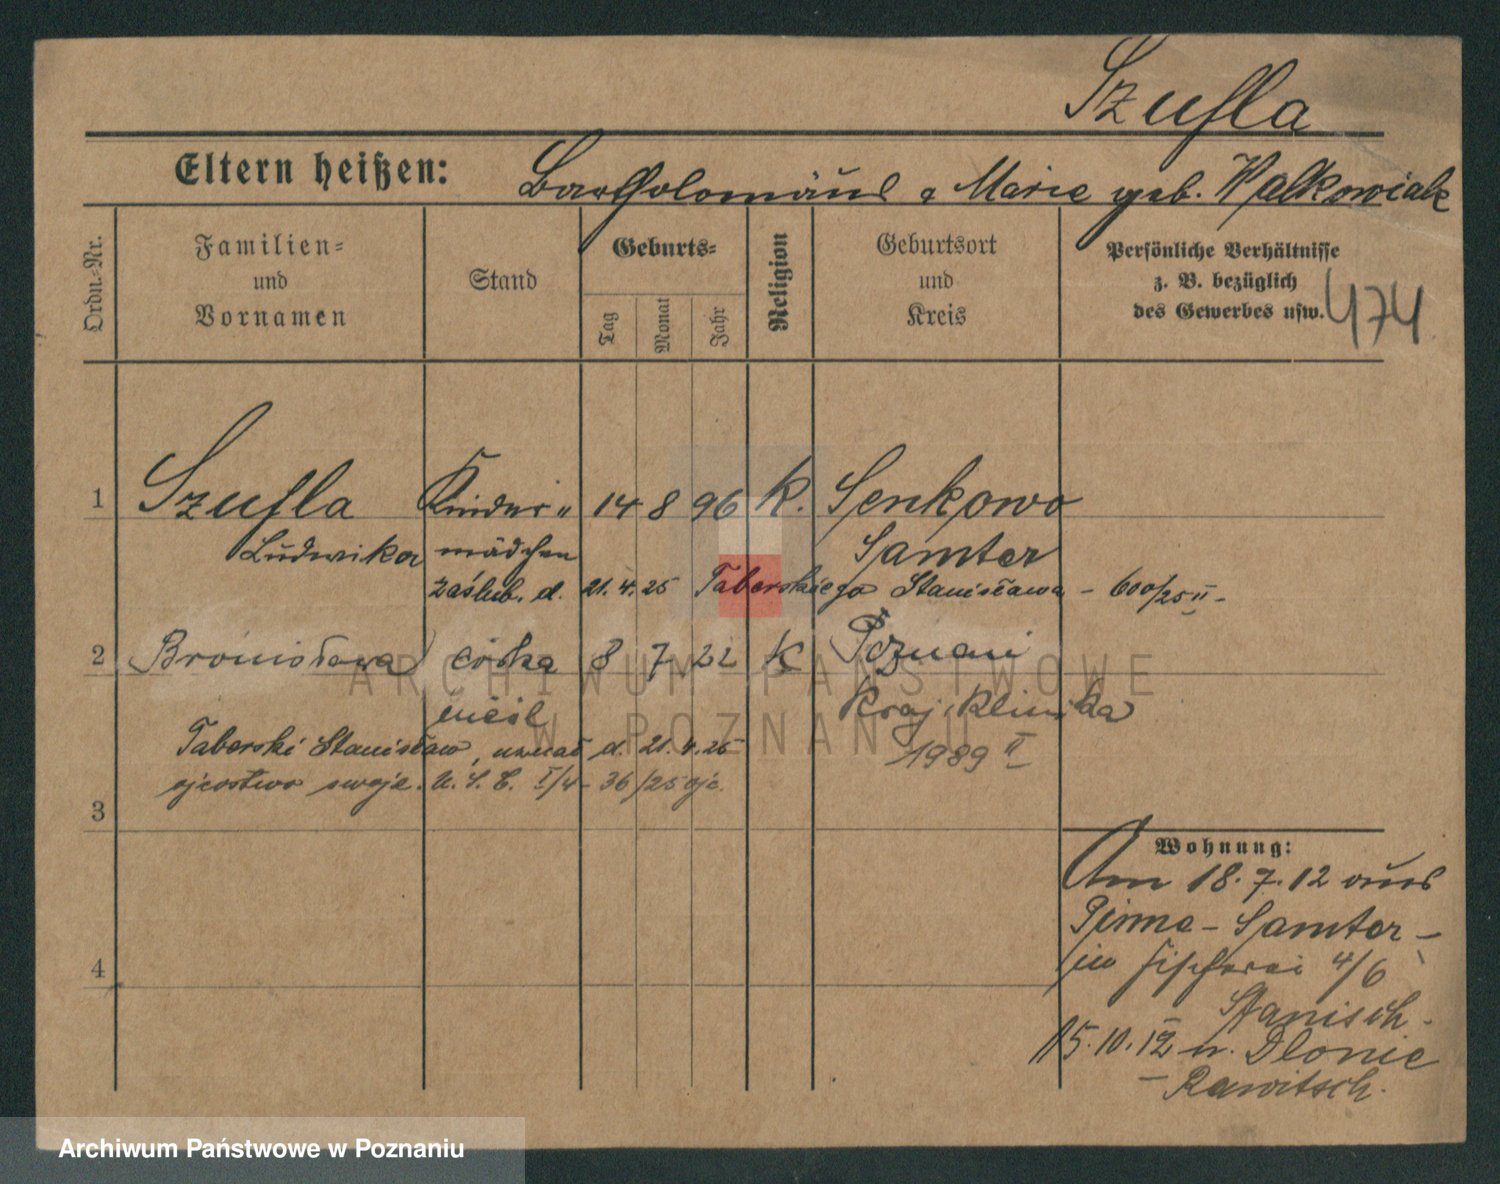 Szufla
Eltern heißen: Bartholomäus u Marie geb. Walkowiak
Ordn.-Nr.
Familien- und Vornamen
Stand
Geburts-
Tag
Monat
Jahr
Religion
Geburtsort und Kreis
Persönliche Verhältnisse
z. B. bezüglich
des Gewerbes usw.
474
1 Szufla Kinder- 14 8 96 K. Senkowo
Ludwika mädchen Samter
zaślub. d. 21.4.25 Taberskiego Stanisława - 600/25 II -
2 Bronisława córka 8 7 22 K Poznań
nieśl Kraj. Klinika
Taberski Stanisław, uznał d. 21.4.25 1989 II
ojcostwo swoje. U.S.C. I/4 - 36/25
3
Wohnung:
Am 18.7.12 aus
Peterawe - Samter -
in Fischerei 4/6
4
Stanisch.
15.10.12 n. Dlonie
- Rawitsch.
ARCHIWUM PAŃSTWOWE
W POZNANIU
Archiwum Państwowe w Poznaniu